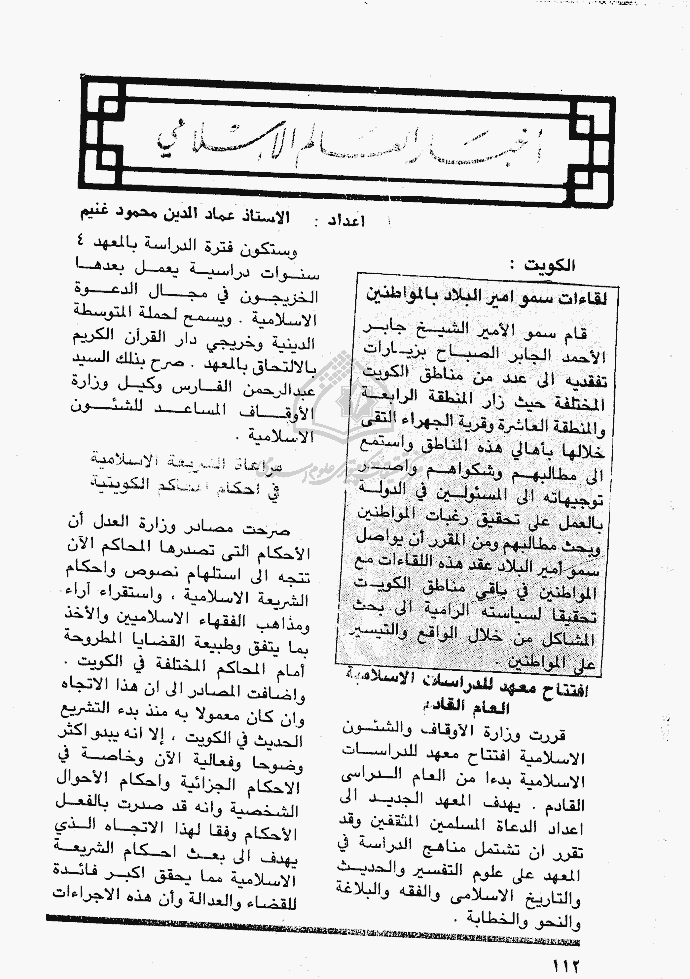 أخبار العالم الإسلامي
اعداد : الاستاذ عماد الدين محمود غنيم
الكويت :
لقاءات سمو امير البلاد بالمواطنين
قام سمو الأمير الشيخ جابر
الأحمد الجابر الصباح بزيارات
تفقديه الى عدد من مناطق الكويت
المختلفة حيث زار المنطقة الرابعة
والمنطقة العاشرة وقرية الجهراء التقى
خلالها بأهالي هذه المناطق واستمع
الى مطالبهم وشكواهم واصدر
توجيهاته الى المسئولين في الدولة
بالعمل على تحقيق رغبات المواطنين
وبحث مطالبهم ومن المقرر أن يواصل
سمو أمير البلاد عقد هذه اللقاءات مع
المواطنين في باقي مناطق الكويت
تحقيقا لسياسته الرامية الى بحث
المشاكل من خلال الواقع والتيسير
على المواطنين .
افتتاح معهد للدراسات الاسلامية
العام القادم
قررت وزارة الأوقاف والشئون
الاسلامية افتتاح معهد للدراسات
الاسلامية بدءا من العام الدراسى
القادم . يهدف المعهد الجديد الى
اعداد الدعاة المسلمين المثقفين وقد
تقرر ان تشتمل مناهج الدراسة في
المعهد على علوم التفسير والحديث
والتاريخ الاسلامى والفقه والبلاغة
والنحو والخطابة .
وستكون فترة الدراسة بالمعهد ٤
سنوات دراسية يعمل بعدها
الخريجون في مجال الدعوة
الاسلامية . ويسمح لحملة المتوسطة
الدينية وخريجي دار القرآن الكريم
بالالتحاق بالمعهد . صرح بذلك السيد
عبدالرحمن الفارس وكيل وزارة
الأوقاف المساعد للشئون
الاسلامية .
مراعاة الشريعة الاسلامية
في احكام المحاكم الكويتية
صرحت مصادر وزارة العدل أن
الأحكام التى تصدرها المحاكم الآن
تتجه الى استلهام نصوص واحكام
الشريعة الاسلامية ، واستقراء أراء
ومذاهب الفقهاء الاسلاميين والأخذ
بما يتفق وطبيعة القضايا المطروحة
أمام المحاكم المختلفة في الكويت .
واضافت المصادر الى ان هذا الاتجاه
وان كان معمولا به منذ بدء التشريع
الحديث في الكويت ، إلا انه يبدو اكثر
وضوحا وفعالية الآن وخاصة في
الاحكام الجزائية واحكام الأحوال
الشخصية وانه قد صدرت بالفعل
الأحكام وفقا لهذا الاتجاه الذي
يهدف الى بعث احكام الشريعة
الاسلامية مما يحقق اكبر فائدة
للقضاء والعدالة وأن هذه الاجراءات
١١٢